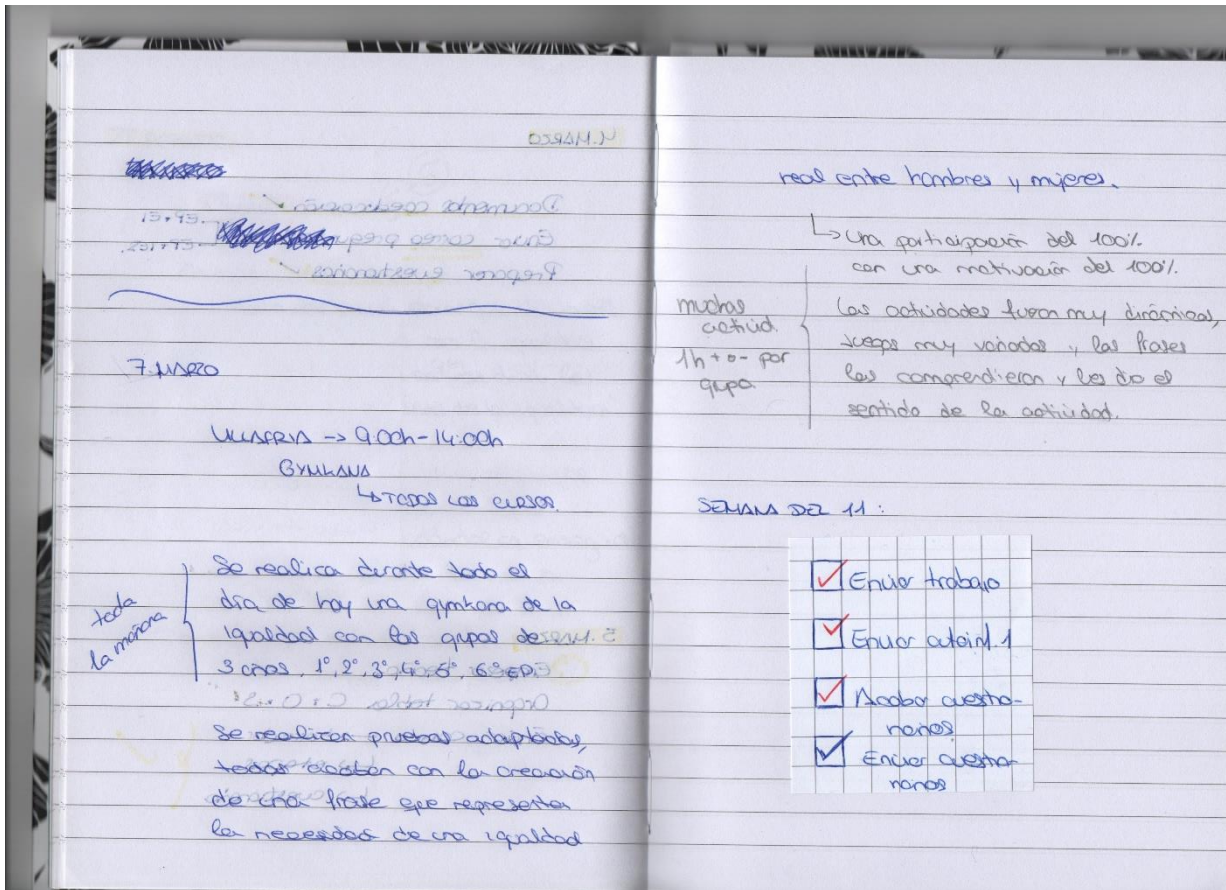 7. MARZO
VILLAFRIA -> 9:00h - 14:00h
GYMKANA
↳ TODOS LOS CURSOS.
toda
la mañana
Se realiza durante todo el
día de hoy una gymkana de la
igualdad con los grupos de
3 años, 1º, 2º, 3º, 4º, 5º, 6º EP.
Se realizan pruebas adaptadas,
todos acaban con la creación
de una frase que representa
la necesidad de una igualdad
real entre hombres y mujeres.
↳ Una participación del 100%.
con una motivación del 100%.
muchas
activid.
1h + o - por
grupo
Las actividades fueron muy dinámicas,
juegos muy variados y las frases
las comprendieron y les do el
sentido de la actividad.
SEMANA DEL 11:
☑ Enviar trabajo
☑ Enviar autoinf. 1
☑ Acabar cuestio-
narios
☑ Enviar cuestio-
narios